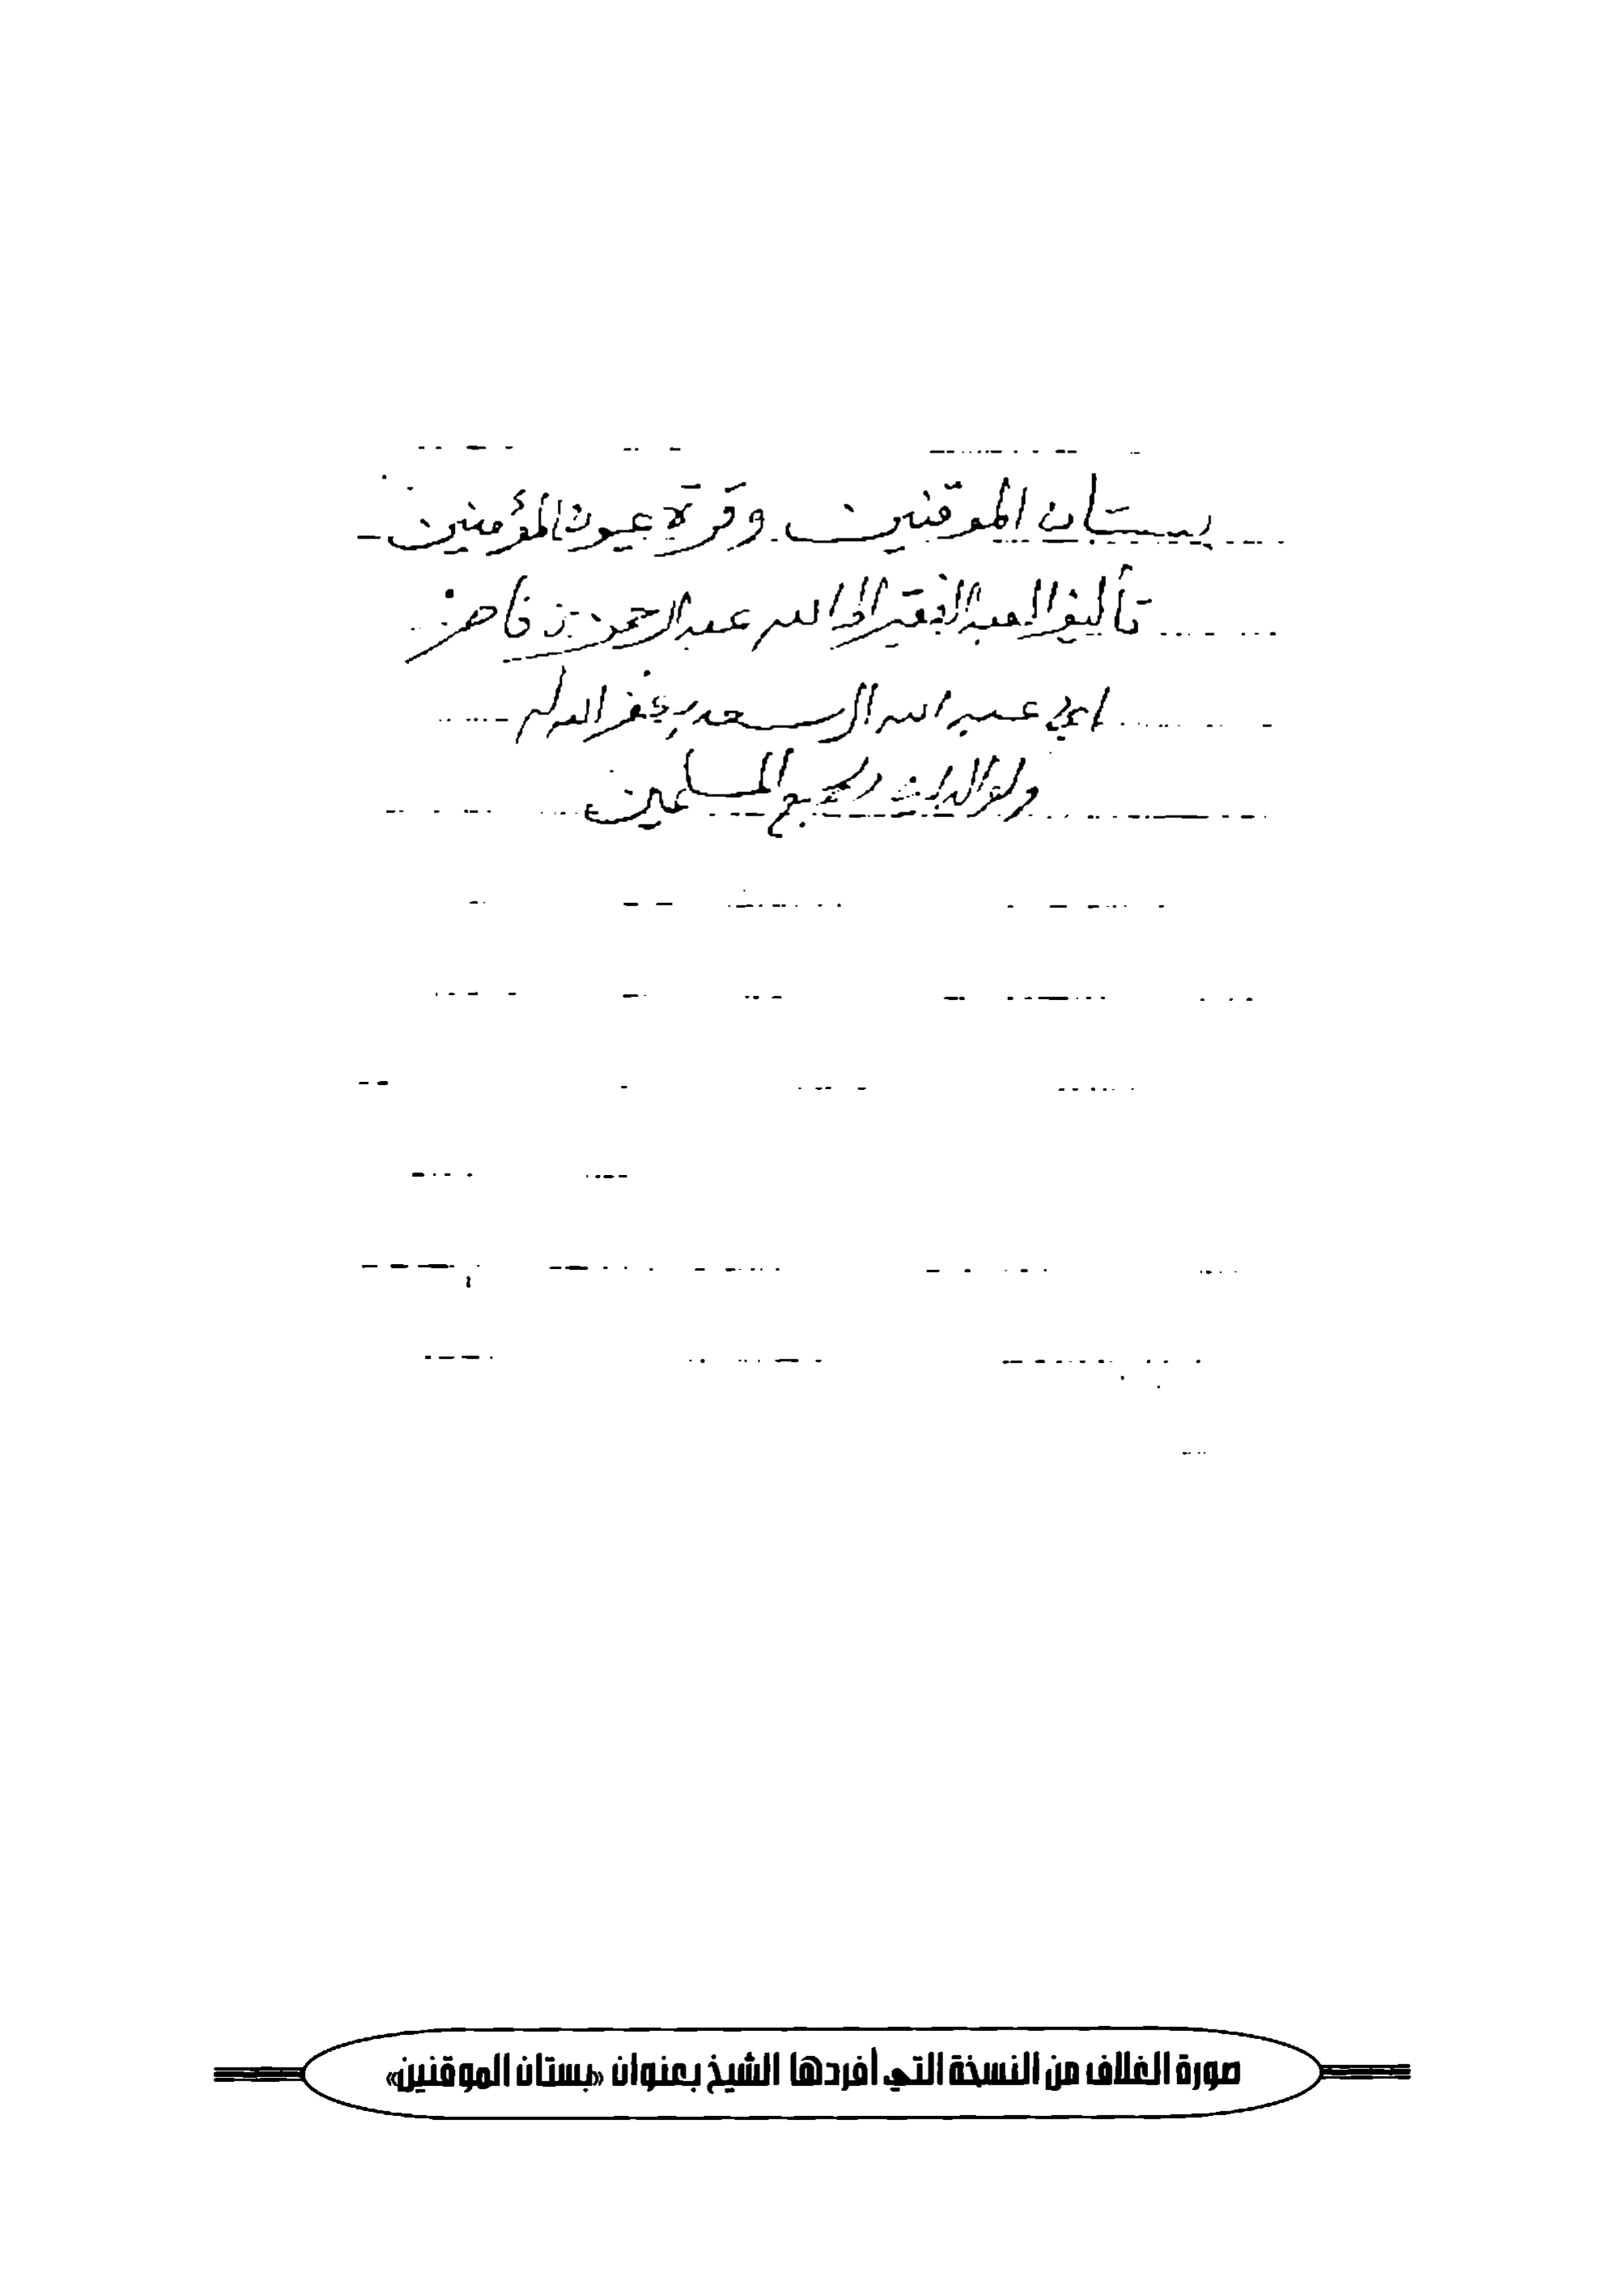 بستان الموقنين وقرة عيون المؤمنين
تأليف العبد الفقير الى الله عبد الرحمن بن ناصر
ابن عبد الله السعدي غفر الله له
ولوالديه وجميع المسلمين
صورة الغلاف من النسخة التي أفردها الشيخ بعنوان «بستان الموقنين»